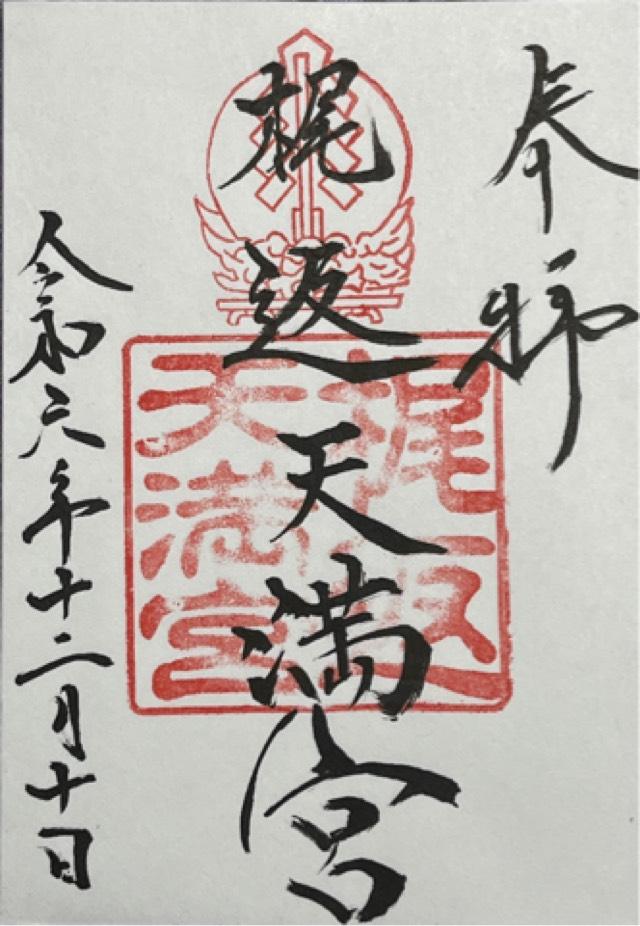 奉拝
梶返天満宮
令和六年十二月十日
梶返
天満宮